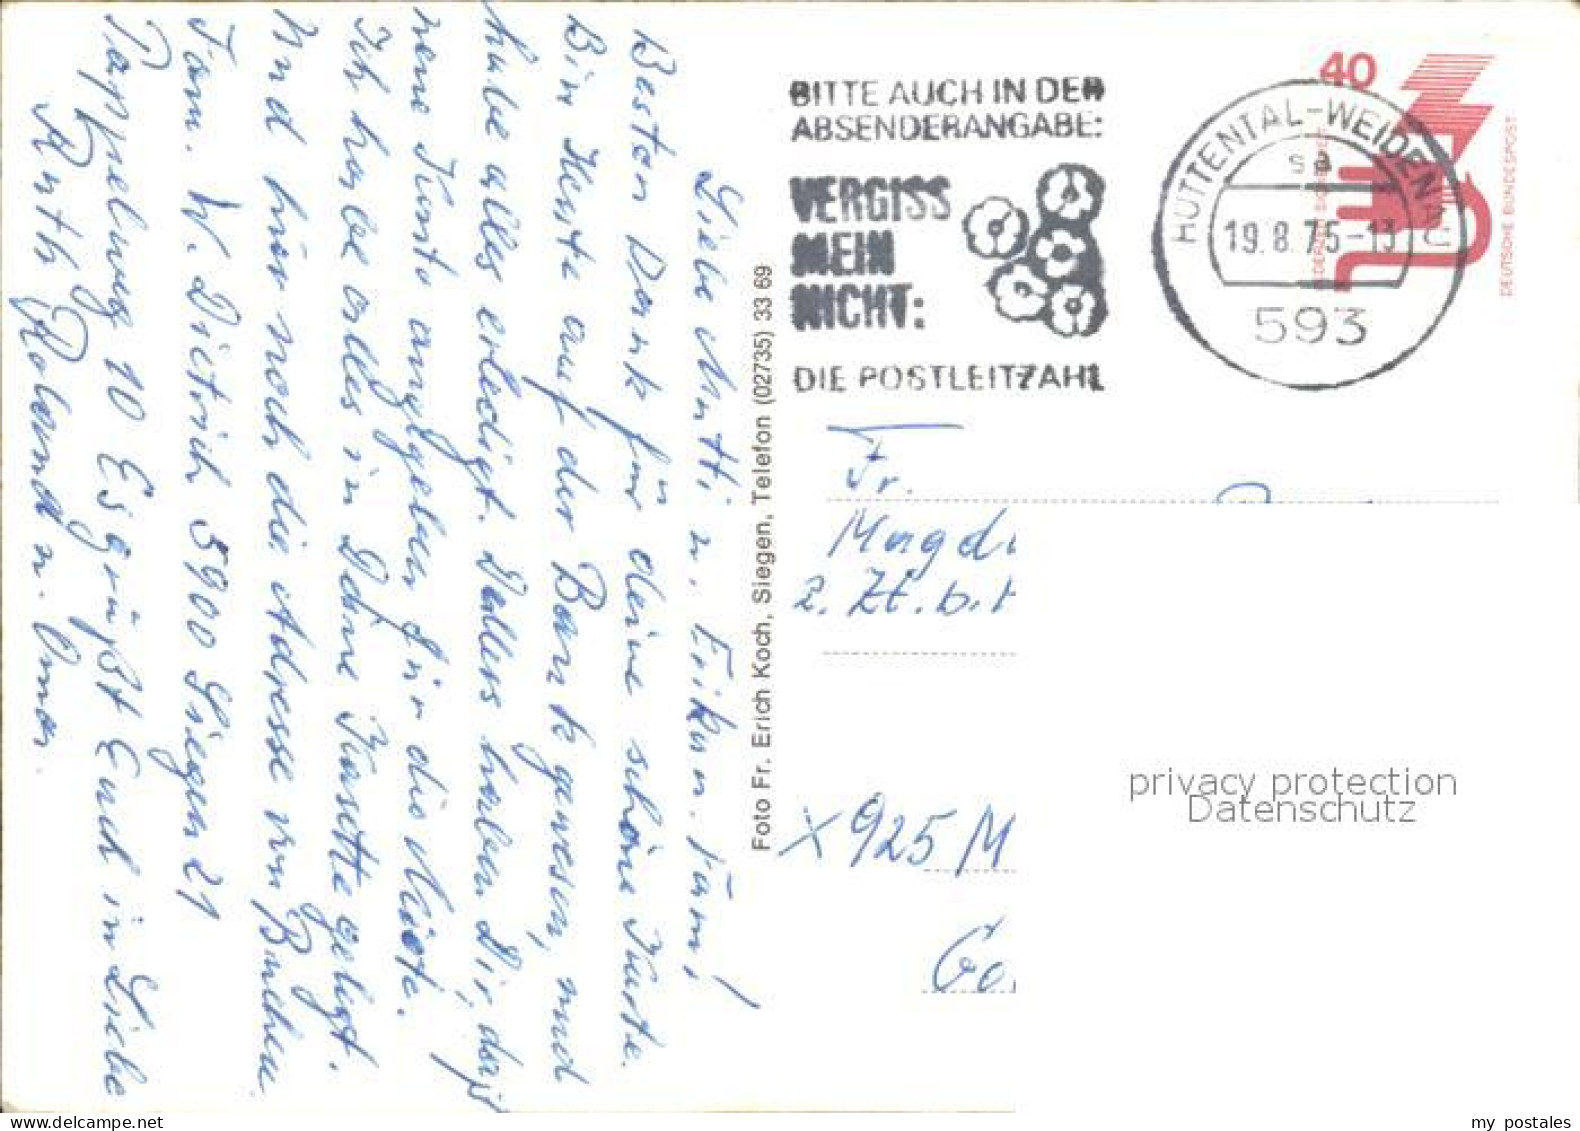 Liebe Mutti u. Erika u. Fam!
Besten Dank für deine schöne Karte.
Bin Heute auf der Bank gewesen, und
habe alles erledigt. Dellers haben Dir, daß
neue Konto angegeben für die Miete.
Ich habe alles in Deine Kasette gelegt.
Und hier noch die Adresse von Buchen
Fam. W. Dietrich 5900 Siegen 21
Pappelweg 10 Es grüßt Euch in Liebe
Ruth Roland u. Omar.
Foto Fr. Erich Koch, Siegen, Telefon (02735) 33 69
BITTE AUCH IN DER
ABSENDERANGABE:
VERGISS
MEIN
NICHT:
DIE POSTLEITZAHL
HÜTTENTAL-WEIDENAU
sa
19.8.75-13
593
40
DEUTSCHE BUNDESPOST
Fr.
Magd
z. Zt. b.
x 925 M
Go
privacy protection
Datenschutz
my postales